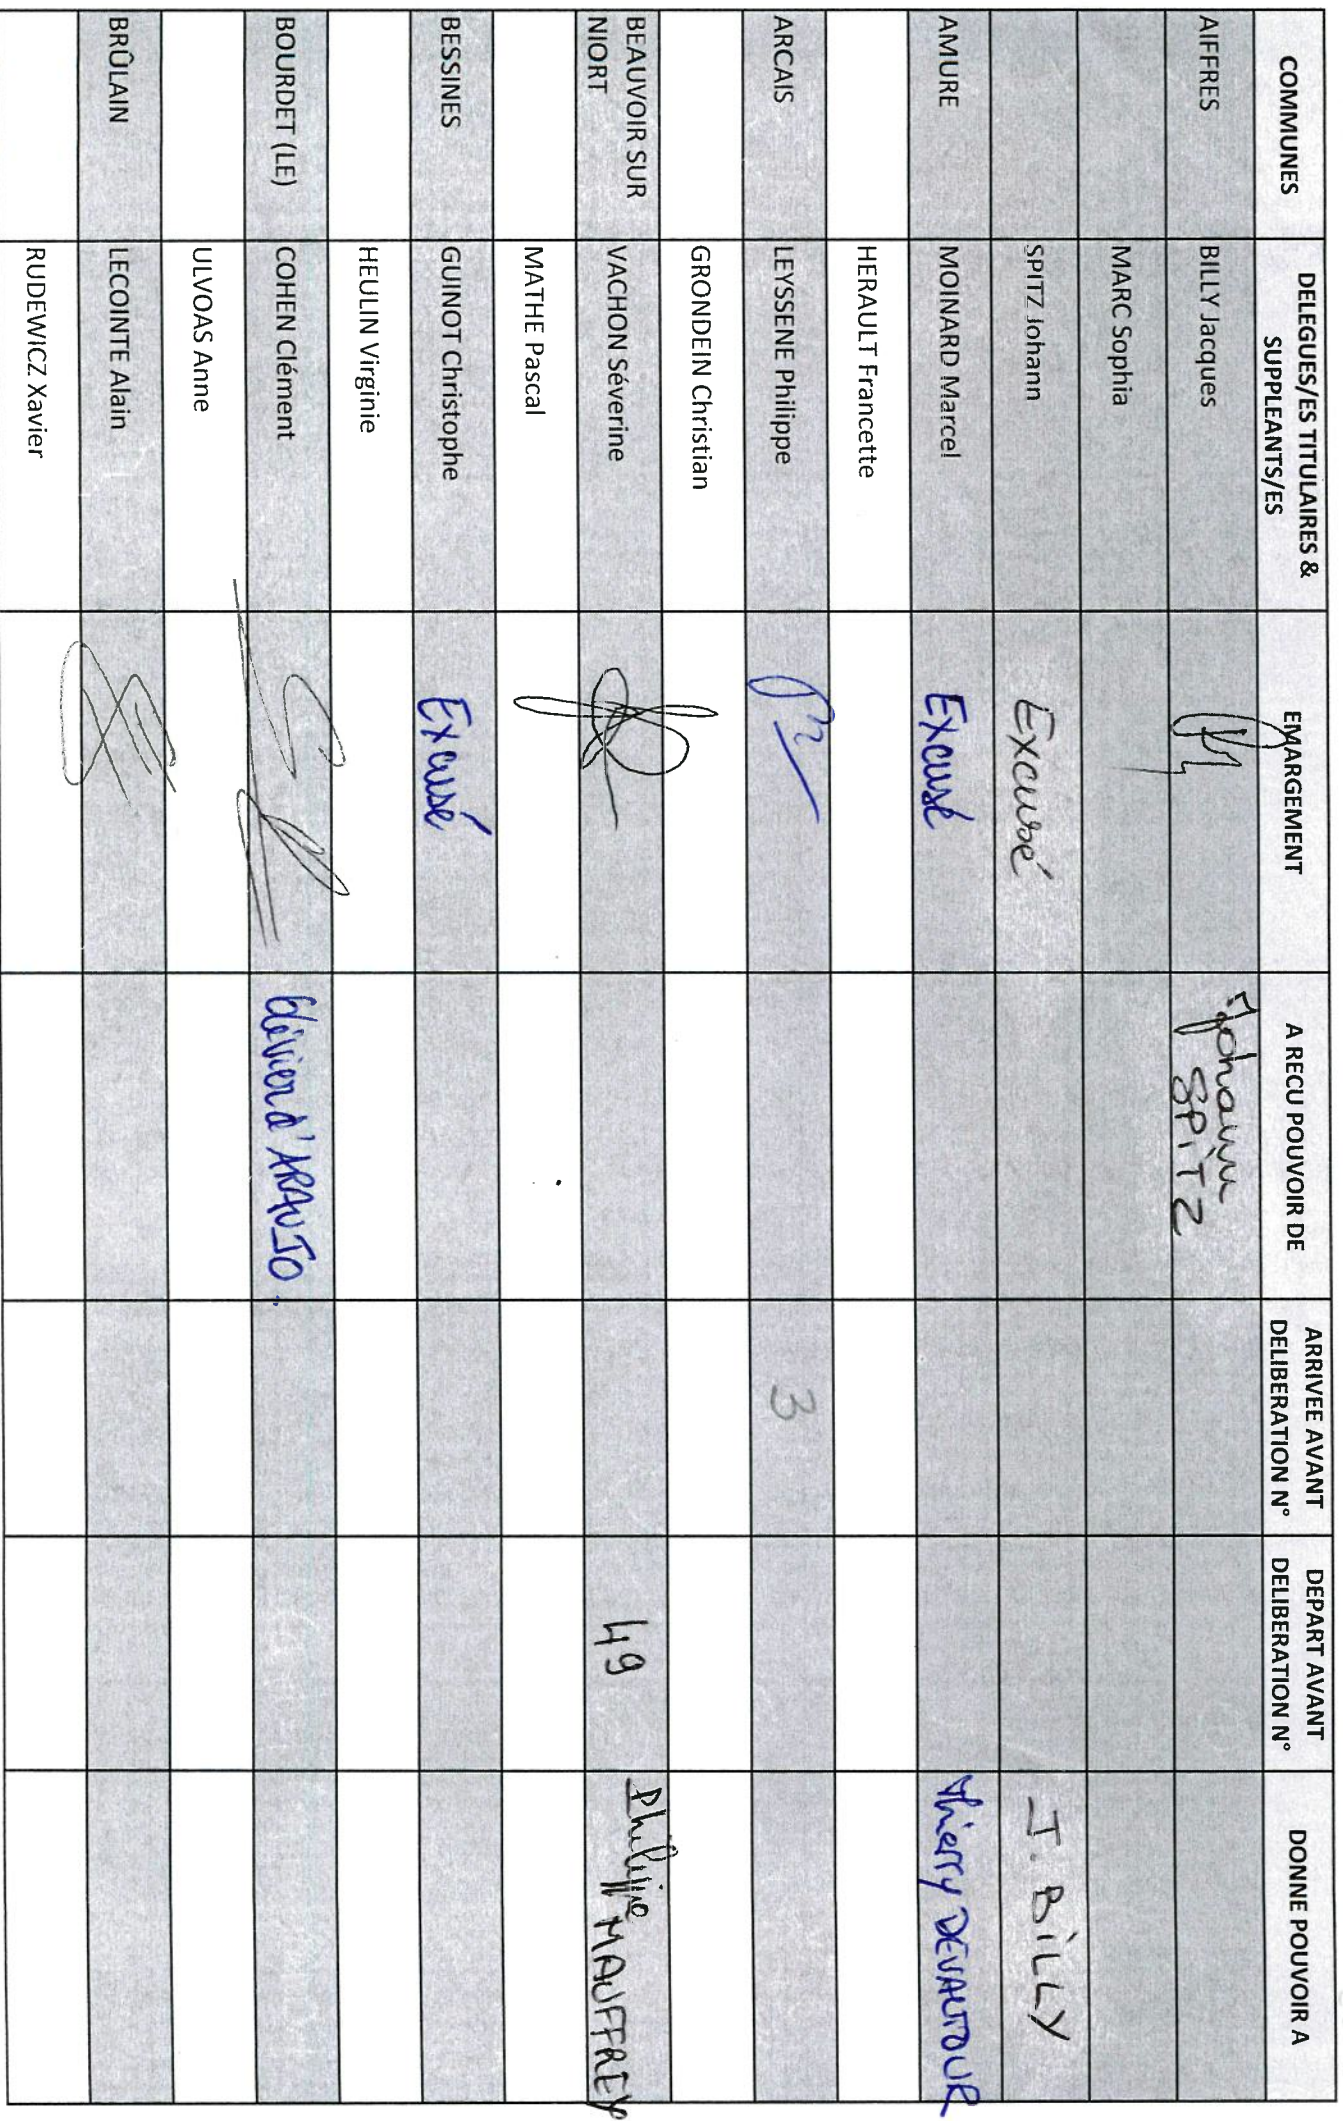 COMMUNES
DELEGUES/ES TITULAIRES &
SUPPLEANTS/ES
EMARGEMENT
A RECU POUVOIR DE
ARRIVEE AVANT
DELIBERATION N°
DEPART AVANT
DELIBERATION N°
DONNE POUVOIR A
AIFFRES
BILLY Jacques
Johann
SPITZ
MARC Sophia
SPITZ Johann
Excusé
J. BILLY
AMURE
MOINARD Marcel
Excusé
Thierry DEVAUTOUR
HERAULT Francette
ARCAIS
LEYSSENE Philippe
3
GRONDEIN Christian
BEAUVOIR SUR
NIORT
VACHON Séverine
49
Philippe
MAUFFREY
MATHE Pascal
BESSINES
GUINOT Christophe
Excusé
HEULIN Virginie
BOURDET (LE)
COHEN Clément
d'ARAUJO
ULVOAS Anne
BRÛLAIN
LECOINTE Alain
RUDEWICZ Xavier